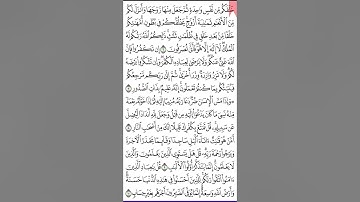 خَلَقَكُم مِّن نَّفْسٍ وَٰحِدَةٍ ثُمَّ جَعَلَ مِنْهَا زَوْجَهَا وَأَنزَلَ لَكُم
مِّنَ ٱلْأَنْعَٰمِ ثَمَٰنِيَةَ أَزْوَٰجٍ يَخْلُقُكُمْ فِى بُطُونِ أُمَّهَٰتِكُمْ
خَلْقًا مِّنۢ بَعْدِ خَلْقٍ فِى ظُلُمَٰتٍ ثَلَٰثٍ ذَٰلِكُمُ ٱللَّهُ رَبُّكُمْ لَهُ
ٱلْمُلْكُ لَآ إِلَٰهَ إِلَّا هُوَ فَأَنَّىٰ تُصْرَفُونَ ٦ إِن تَكْفُرُوا۟ فَإِنَّ
ٱللَّهَ غَنِىٌّ عَنكُمْ وَلَا يَرْضَىٰ لِعِبَادِهِ ٱلْكُفْرَ وَإِن تَشْكُرُوا۟ يَرْضَهُ
لَكُمْ وَلَا تَزِرُ وَازِرَةٌ وِزْرَ أُخْرَىٰ ثُمَّ إِلَىٰ رَبِّكُم مَّرْجِعُكُمْ
فَيُنَبِّئُكُم بِمَا كُنتُمْ تَعْمَلُونَ إِنَّهُۥ عَلِيمٌۢ بِذَاتِ ٱلصُّدُورِ ٧
وَإِذَا مَسَّ ٱلْإِنسَٰنَ ضُرٌّ دَعَا رَبَّهُۥ مُنِيبًا إِلَيْهِ ثُمَّ إِذَا خَوَّلَهُۥ نِعْمَةً
مِّنْهُ نَسِىَ مَا كَانَ يَدْعُوٓا۟ إِلَيْهِ مِن قَبْلُ وَجَعَلَ لِلَّهِ أَندَادًا لِّيُضِلَّ
عَن سَبِيلِهِۦ قُلْ تَمَتَّعْ بِكُفْرِكَ قَلِيلًا إِنَّكَ مِنْ أَصْحَٰبِ ٱلنَّارِ ٨
أَمَّنْ هُوَ قَٰنِتٌ ءَانَآءَ ٱلَّيْلِ سَاجِدًا وَقَآئِمًا يَحْذَرُ ٱلْءَاخِرَةَ
وَيَرْجُوا۟ رَحْمَةَ رَبِّهِۦ قُلْ هَلْ يَسْتَوِى ٱلَّذِينَ يَعْلَمُونَ وَٱلَّذِينَ
لَا يَعْلَمُونَ إِنَّمَا يَتَذَكَّرُ أُو۟لُوا۟ ٱلْأَلْبَٰبِ ٩ قُلْ يَٰعِبَادِ ٱلَّذِينَ
ءَامَنُوا۟ ٱتَّقُوا۟ رَبَّكُمْ لِلَّذِينَ أَحْسَنُوا۟ فِى هَٰذِهِ ٱلدُّنْيَا حَسَنَةٌ
وَأَرْضُ ٱللَّهِ وَٰسِعَةٌ إِنَّمَا يُوَفَّى ٱلصَّٰبِرُونَ أَجْرَهُم بِغَيْرِ حِسَابٍ ١٠